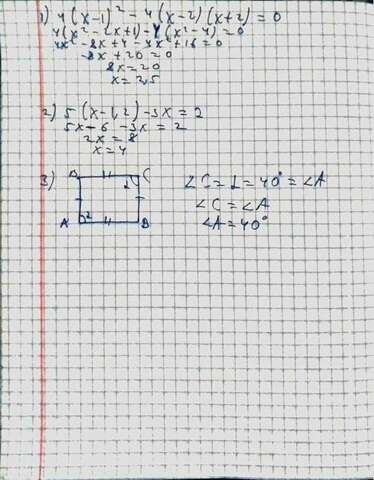 1) 4(x-1)² - 4(x-2)(x+2) = 0
4(x² - 2x + 1) - 4(x² - 4) = 0
4x² - 8x + 4 - 4x² + 16 = 0
-8x + 20 = 0
8x = 20
x = 2,5
2) 5(x-1,2) - 3x = 2
5x - 6 - 3x = 2
2x = 8
x = 4
3) D C ∠C = 1 = 40° = ∠A
1
∠C = ∠A
A 2 B ∠A = 40°